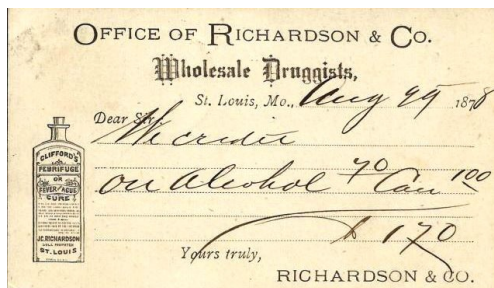 OFFICE OF RICHARDSON & CO.
Wholesale Druggists,
St. Louis, Mo., Aug 29 1878
Dear Sir
We credit
on Alcohol 70 Can 100
$ 170
Yours truly,
RICHARDSON & CO.
CLIFFORD'S
FEBRIFUGE
OR
FEVER AND AGUE
CURE
J.C. RICHARDSON
SOLE PROPRIETOR
ST. LOUIS